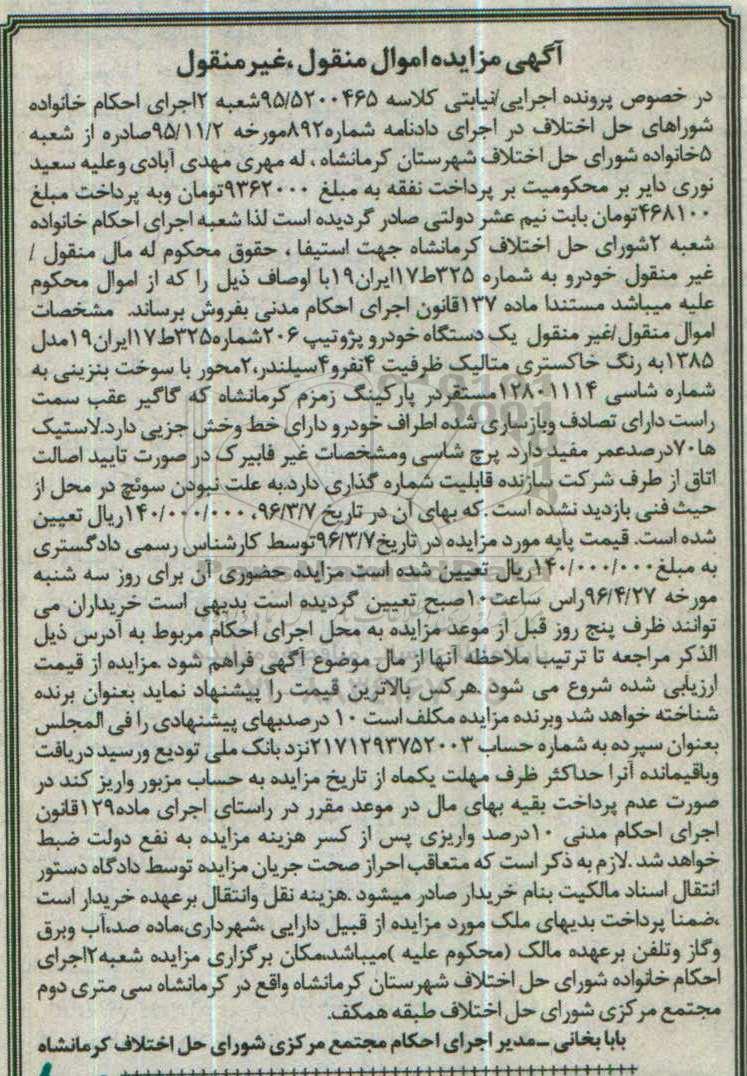 آگهی مزایده اموال منقول ،غیر منقول
در خصوص پرونده اجرایی/نیابتی کلاسه ۹۵/۵۲۰۰۴۶۵شعبه ۲اجرای احکام خانواده
شوراهای حل اختلاف در اجرای دادنامه شماره۸۹۲مورخه ۹۵/۱۱/۲صادره از شعبه
۵خانواده شورای حل اختلاف شهرستان کرمانشاه ، له مهری مهدی آبادی وعلیه سعید
نوری دایر بر محکومیت بر پرداخت نفقه به مبلغ ۹۳۶۲۰۰۰تومان وبه پرداخت مبلغ
۴۶۸۱۰۰تومان بابت نیم عشر دولتی صادر گردیده است لذا شعبه اجرای احکام خانواده
شعبه ۲شورای حل اختلاف کرمانشاه جهت استیفا ، حقوق محکوم له مال منقول /
غیر منقول خودرو به شماره ۳۲۵ط۱۷ایران۱۹با اوصاف ذیل را که از اموال محکوم
علیه میباشد مستندا ماده ۱۳۷قانون اجرای احکام مدنی بفروش برساند. مشخصات
اموال منقول/غیر منقول یک دستگاه خودرو پژوتیپ ۲۰۶شماره۳۲۵ط۱۷ایران۱۹مدل
۱۳۸۵به رنگ خاکستری متالیک ظرفیت ۴نفرو۴سیلندر،۲محور با سوخت بنزینی به
شماره شاسی ۱۲۸۰۱۱۱۴مستقردر پارکینگ زمزم کرمانشاه که گاگیر عقب سمت
راست دارای تصادف وبازسازی شده اطراف خودرو دارای خط وخش جزیی دارد.لاستیک
ها۷۰درصدعمر مفید دارد. پرچ شاسی ومشخصات غیر فابیرک در صورت تایید اصالت
اتاق از طرف شرکت سازنده قابلیت شماره گذاری دارد.به علت نبودن سوئچ در محل از
حیث فنی بازدید نشده است .که بهای آن در تاریخ ۹۶/۳/۷، ۱۴۰/۰۰۰/۰۰۰ریال تعیین
شده است. قیمت پایه مورد مزایده در تاریخ۹۶/۳/۷توسط کارشناس رسمی دادگستری
به مبلغ۱۴۰/۰۰۰/۰۰۰ریال تعیین شده است مزایده حضوری آن برای روز سه شنبه
مورخه ۹۶/۴/۲۷راس ساعت۱۰صبح تعیین گردیده است بدیهی است خریداران می
توانند ظرف پنج روز قبل از موعد مزایده به محل اجرای احکام مربوط به آدرس ذیل
الذکر مراجعه تا ترتیب ملاحظه آنها از مال موضوع آگهی فراهم شود .مزایده از قیمت
ارزیابی شده شروع می شود .هرکس بالاترین قیمت را پیشنهاد نماید بعنوان برنده
شناخته خواهد شد وبرنده مزایده مکلف است ۱۰ درصدبهای پیشنهادی را فی المجلس
بعنوان سپرده به شماره حساب ۲۱۷۱۲۹۳۷۵۲۰۰۳نزد بانک ملی تودیع ورسید دریافت
وباقیمانده آنرا حداکثر ظرف مهلت یکماه از تاریخ مزایده به حساب مزبور واریز کند در
صورت عدم پرداخت بقیه بهای مال در موعد مقرر در راستای اجرای ماده۱۲۹قانون
اجرای احکام مدنی ۱۰درصد واریزی پس از کسر هزینه مزایده به نفع دولت ضبط
خواهد شد .لازم به ذکر است که متعاقب احراز صحت جریان مزایده توسط دادگاه دستور
انتقال اسناد مالکیت بنام خریدار صادر میشود .هزینه نقل وانتقال برعهده خریدار است
،ضمنا پرداخت بدیهای ملک مورد مزایده از قبیل دارایی ،شهرداری،ماده صد،آب وبرق
وگاز وتلفن برعهده مالک (محکوم علیه )میباشد،مکان برگزاری مزایده شعبه۲اجرای
احکام خانواده شورای حل اختلاف شهرستان کرمانشاه واقع در کرمانشاه سی متری دوم
مجتمع مرکزی شورای حل اختلاف طبقه همکف.
بابا بخانی -مدیر اجرای احکام مجتمع مرکزی شورای حل اختلاف کرمانشاه